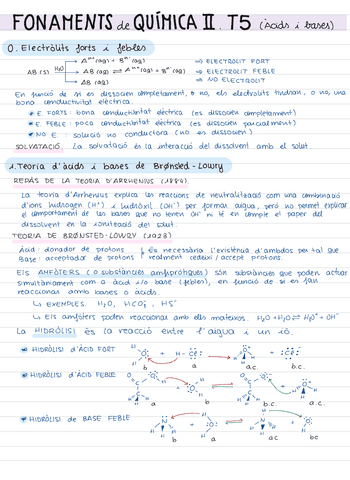 FONAMENTS de QUÍMICA II. T5 (Àcids i bases)
0. Electròlits forts i febles
Aᵐ⁺(aq) + Bⁿ⁻(aq) ⇒ ELECTROLIT FORT
AB (s) H₂O AB (aq) ⇌ Aᵐ⁺(aq) + Bⁿ⁻(aq) ⇒ ELECTROLIT FEBLE
AB (aq) ⇒ NO ELECTROLIT
En funció de si es dissocien completament, o no, els electròlits tindran, o no, una
bona conductivitat elèctrica.
E. FORTS: bona conductivitat elèctrica (es dissocien completament)
E. FEBLE: poca conductivitat elèctrica (es dissocien parcialment)
NO E.: solució no conductora (no es dissocien)
SOLVATACIÓ. La solvatació és la interacció del dissolvent amb el solut.
1. Teoria d'àcids i bases de Brønsted-Lowry
REPÀS DE LA TEORIA D'ARRHENIUS (1884)
La teoria d'Arrhenius explica les reaccions de neutralització com una combinació
d'ions hidrogen (H⁺) i hidròxil (OH⁻) per formar aigua, però no permet explicar
el comportament de les bases que no tenen OH⁻ ni té en compte el paper del
dissolvent en la ionització del solut.
TEORIA DE BRØNSTED-LOWRY (1923)
Àcid: donador de protons És necessària l'existència d'ambdós per tal que
Base: acceptador de protons realment cedeixi / accepti protons.
Els AMFÒTERS (o substàncies amfipròtiques) són substàncies que poden actuar
simultàniament com a àcid i/o base (febles), en funció de si es fan
reaccionar amb bases o àcids.
↳ EXEMPLES. H₂O, HCO₃⁻, HS⁻
↳ Els amfòters poden reaccionar amb ells mateixos. H₂O + H₂O ⇌ H₃O⁺ + OH⁻
La HIDRÒLISI és la reacció entre l'aigua i un ió.
HIDRÒLISI d'ÀCID FORT
b a a.c. b.c.
HIDRÒLISI d'ÀCID FEBLE
a b b.c. a.c.
HIDRÒLISI de BASE FEBLE
b a a.c. b.c.